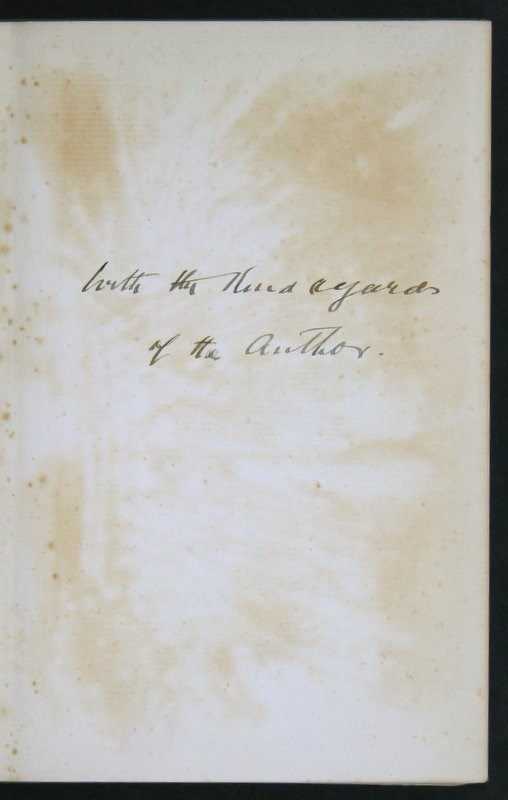 With the Kind regards
of the Author.